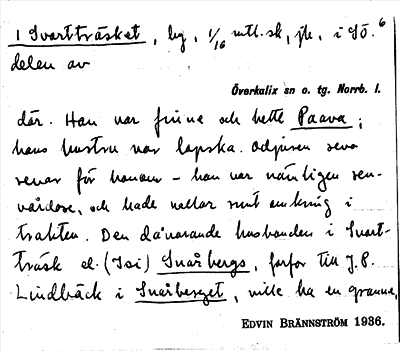 1 Svartträsket, by, 1/16 mtl. sk, jb, i SÖ. 6
delen av
Överkalix sn o. tg. Norrb. l.
där. Han var finne och hette Paava;
hans hustru var lapska. Odjuren revo
renar för honom – han var nämligen ren-
vårdare, och hade vallar runt omkring i
trakten. Den dåvarande husbonden i Svart-
träsk el. (Isi) Snårbergs, farfar till J. P.
Lindbäck i Snårberget, ville ha en granne,
EDVIN BRÄNNSTRÖM 1936.